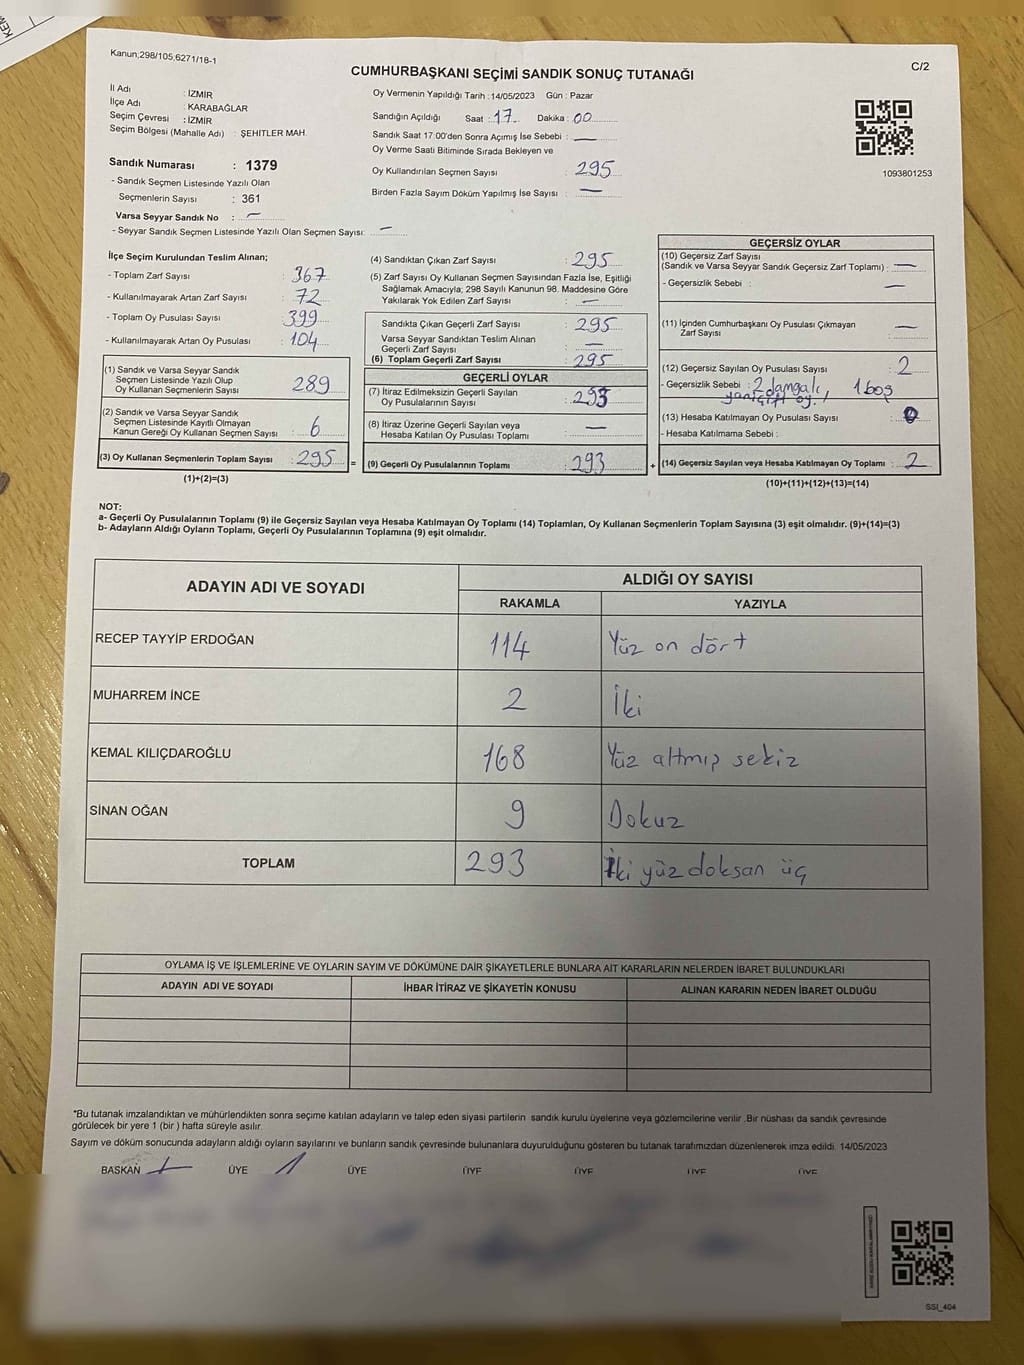 Kanun;298/105,6271/18-1
C/2
CUMHURBAŞKANI SEÇİMİ SANDIK SONUÇ TUTANAĞI
İl Adı : İZMİR
İlçe Adı : KARABAĞLAR
Seçim Çevresi : İZMİR
Seçim Bölgesi (Mahalle Adı) : ŞEHİTLER MAH.
Sandık Numarası : 1379
- Sandık Seçmen Listesinde Yazılı Olan
Seçmenlerin Sayısı : 361
Varsa Seyyar Sandık No : —
- Seyyar Sandık Seçmen Listesinde Yazılı Olan Seçmen Sayısı: —
Oy Vermenin Yapıldığı Tarih : 14/05/2023 Gün : Pazar
Sandığın Açıldığı Saat : 17 Dakika : 00
Sandık Saat 17:00'den Sonra Açımış İse Sebebi : —
Oy Verme Saati Bitiminde Sırada Bekleyen ve
Oy Kullandırılan Seçmen Sayısı : 295
Birden Fazla Sayım Döküm Yapılmış İse Sayısı : —
1093801253
İlçe Seçim Kurulundan Teslim Alınan;
- Toplam Zarf Sayısı : 367
- Kullanılmayarak Artan Zarf Sayısı : 72
- Toplam Oy Pusulası Sayısı : 399
- Kullanılmayarak Artan Oy Pusulası : 104
(1) Sandık ve Varsa Seyyar Sandık
Seçmen Listesinde Yazılı Olup
Oy Kullanan Seçmenlerin Sayısı : 289
(2) Sandık ve Varsa Seyyar Sandık
Seçmen Listesinde Kayıtlı Olmayan
Kanun Gereği Oy Kullanan Seçmen Sayısı : 6
(3) Oy Kullanan Seçmenlerin Toplam Sayısı : 295 =
(1)+(2)=(3)
(4) Sandıktan Çıkan Zarf Sayısı : 295
(5) Zarf Sayısı Oy Kullanan Seçmen Sayısından Fazla İse, Eşitliği
Sağlamak Amacıyla; 298 Sayılı Kanunun 98. Maddesine Göre
Yakılarak Yok Edilen Zarf Sayısı : —
Sandıkta Çıkan Geçerli Zarf Sayısı : 295
Varsa Seyyar Sandıktan Teslim Alınan
Geçerli Zarf Sayısı : —
(6) Toplam Geçerli Zarf Sayısı : 295
GEÇERLİ OYLAR
(7) İtiraz Edilmeksizin Geçerli Sayılan
Oy Pusulalarının Sayısı : 293
(8) İtiraz Üzerine Geçerli Sayılan veya
Hesaba Katılan Oy Pusulası Toplamı : —
(9) Geçerli Oy Pusulalarının Toplamı : 293 +
GEÇERSİZ OYLAR
(10) Geçersiz Zarf Sayısı
(Sandık ve Varsa Seyyar Sandık Geçersiz Zarf Toplamı) : —
- Geçersizlik Sebebi : —
(11) İçinden Cumhurbaşkanı Oy Pusulası Çıkmayan
Zarf Sayısı : —
(12) Geçersiz Sayılan Oy Pusulası Sayısı : 2
- Geçersizlik Sebebi : 2 damgalı, 1 boş
yani çift oy. /
(13) Hesaba Katılmayan Oy Pusulası Sayısı :
- Hesaba Katılmama Sebebi :
(14) Geçersiz Sayılan veya Hesaba Katılmayan Oy Toplamı : 2
(10)+(11)+(12)+(13)=(14)
NOT:
a- Geçerli Oy Pusulalarının Toplamı (9) ile Geçersiz Sayılan veya Hesaba Katılmayan Oy Toplamı (14) Toplamları, Oy Kullanan Seçmenlerin Toplam Sayısına (3) eşit olmalıdır. (9)+(14)=(3)
b- Adayların Aldığı Oyların Toplamı, Geçerli Oy Pusulalarının Toplamına (9) eşit olmalıdır.
ADAYIN ADI VE SOYADI ALDIĞI OY SAYISI
RAKAMLA YAZIYLA
RECEP TAYYİP ERDOĞAN 114 Yüz on dört
MUHARREM İNCE 2 İki
KEMAL KILIÇDAROĞLU 168 Yüz altmış sekiz
SİNAN OĞAN 9 Dokuz
TOPLAM 293 İki yüz doksan üç
OYLAMA İŞ VE İŞLEMLERİNE VE OYLARIN SAYIM VE DÖKÜMÜNE DAİR ŞİKAYETLERLE BUNLARA AİT KARARLARIN NELERDEN İBARET BULUNDUKLARI
ADAYIN ADI VE SOYADI İHBAR İTİRAZ VE ŞİKAYETİN KONUSU ALINAN KARARIN NEDEN İBARET OLDUĞU
*Bu tutanak imzalandıktan ve mühürlendikten sonra seçime katılan adayların ve talep eden siyasi partilerin sandık kurulu üyelerine veya gözlemcilerine verilir .Bir nüshası da sandık çevresinde
görülecek bir yere 1 (bir ) hafta süreyle asılır.
Sayım ve döküm sonucunda adayların aldığı oyların sayılarını ve bunların sandık çevresinde bulunanlara duyurulduğunu gösteren bu tutanak tarafımızdan düzenlenerek imza edildi. 14/05/2023
BAŞKAN ÜYE ÜYE ÜYE ÜYE ÜYE ÜYE
SSI_404